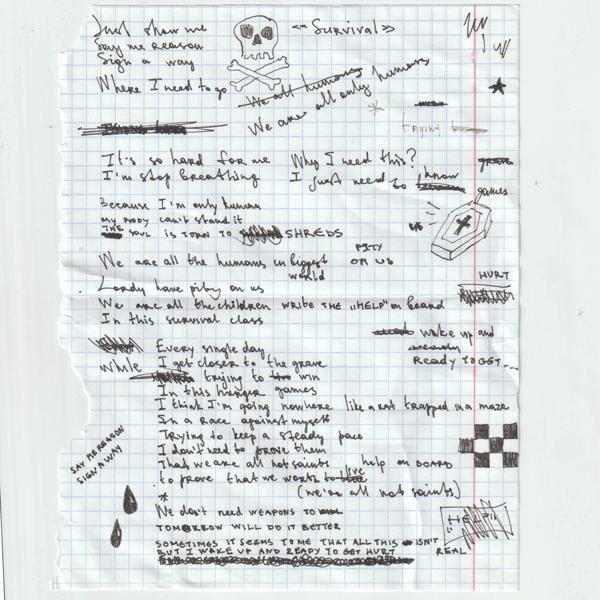 Just show me
Say me reason
Sign a way
Where I need to go
«« Survival »»
We all humans
We are all only humans
trying
It's so hard for me
I'm stop breathing
Why I need this?
I just need to know
games
Because I'm only human
my body can't stand it
THE SOUL IS TORN TO SHREDS
PITY
ON US
We are all the humans in biggest
world
Lordy have pity on us
We are all the children WRITE THE „HELP" on Board
In this survival class
HURT
wake up and
READY TO GET...
Every single day
I get closer to the grave
While trying to win
In this hunger games
I think I'm going nowhere like a rat trapped in a maze
In a Race against myself
Trying to keep a steady pace
I don't need to prove them
That we are all not saints help on BOARD
to prove that we worth to live
* (we're all not saints)
SAY ME REASON
SIGN A WAY
We don't need WEAPONS TO
TOMORROW WILL DO IT BETTER
„HELP"
SOMETIMES IT SEEMS TO ME THAT ALL THIS ISN'T REAL
BUT I WAKE UP AND READY TO GET HURT